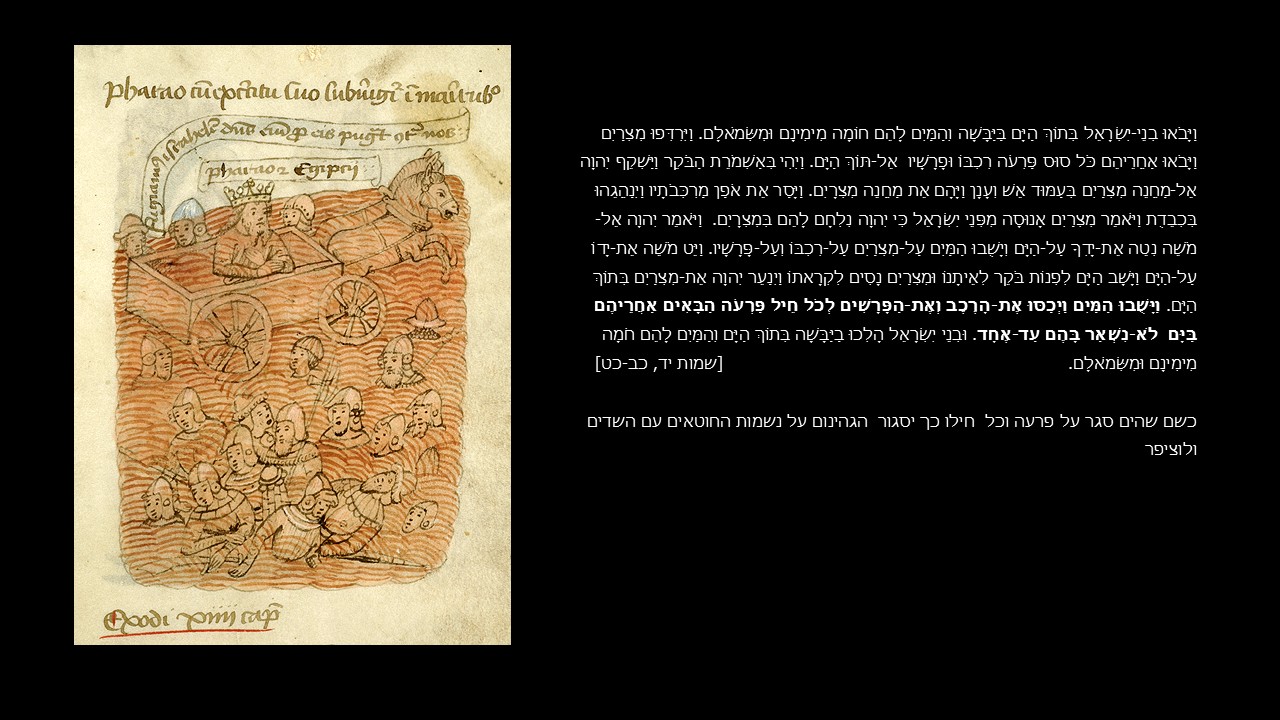 Pharao cu exercitu suo submergitur in mari rubro
Fugiamus israhele dns enim p eis pugnat contra nos
pharao z Egiptij
Exodi xiiii cap
וַיָּבֹאוּ בְנֵי-יִשְׂרָאֵל בְּתוֹךְ הַיָּם בַּיַּבָּשָׁה וְהַמַּיִם לָהֶם חוֹמָה מִימִינָם וּמִשְּׂמֹאלָם. וַיִּרְדְּפוּ מִצְרַיִם
וַיָּבֹאוּ אַחֲרֵיהֶם כֹּל סוּס פַּרְעֹה רִכְבּוֹ וּפָרָשָׁיו אֶל-תּוֹךְ הַיָּם. וַיְהִי בְּאַשְׁמֹרֶת הַבֹּקֶר וַיַּשְׁקֵף יְהוָה
אֶל-מַחֲנֵה מִצְרַיִם בְּעַמּוּד אֵשׁ וְעָנָן וַיָּהָם אֵת מַחֲנֵה מִצְרָיִם. וַיָּסַר אֵת אֹפַן מַרְכְּבֹתָיו וַיְנַהֲגֵהוּ
בִּכְבֵדֻת וַיֹּאמֶר מִצְרַיִם אָנוּסָה מִפְּנֵי יִשְׂרָאֵל כִּי יְהוָה נִלְחָם לָהֶם בְּמִצְרָיִם. וַיֹּאמֶר יְהוָה אֶל-
מֹשֶׁה נְטֵה אֶת-יָדְךָ עַל-הַיָּם וְיָשֻׁבוּ הַמַּיִם עַל-מִצְרַיִם עַל-רִכְבּוֹ וְעַל-פָּרָשָׁיו. וַיֵּט מֹשֶׁה אֶת-יָדוֹ
עַל-הַיָּם וַיָּשָׁב הַיָּם לִפְנוֹת בֹּקֶר לְאֵיתָנוֹ וּמִצְרַיִם נָסִים לִקְרָאתוֹ וַיְנַעֵר יְהוָה אֶת-מִצְרַיִם בְּתוֹךְ
הַיָּם. וַיָּשֻׁבוּ הַמַּיִם וַיְכַסּוּ אֶת-הָרֶכֶב וְאֶת-הַפָּרָשִׁים לְכֹל חֵיל פַּרְעֹה הַבָּאִים אַחֲרֵיהֶם
בַּיָּם לֹא-נִשְׁאַר בָּהֶם עַד-אֶחָד. וּבְנֵי יִשְׂרָאֵל הָלְכוּ בַיַּבָּשָׁה בְּתוֹךְ הַיָּם וְהַמַּיִם לָהֶם חֹמָה
מִימִינָם וּמִשְּׂמֹאלָם. [שמות יד, כב-כט]
כשם שהים סגר על פרעה וכל חילו כך יסגור הגהינום על נשמות החוטאים עם השדים
ולוציפר